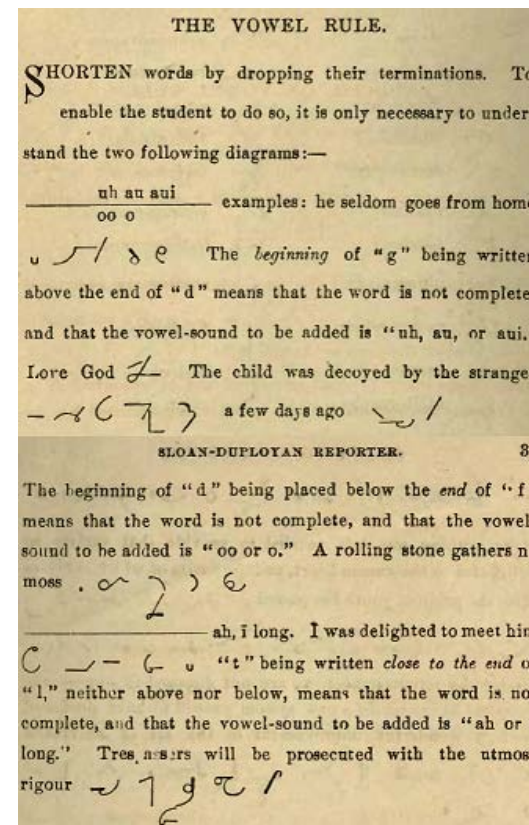 THE VOWEL RULE.
SHORTEN words by dropping their terminations. To
enable the student to do so, it is only necessary to under
stand the two following diagrams:—
uh au aui
oo o
examples: he seldom goes from home
The beginning of "g" being written
above the end of "d" means that the word is not complete
and that the vowel-sound to be added is "uh, au, or aui.
Love God The child was decoyed by the strange
a few days ago
SLOAN-DUPLOYAN REPORTER. 3
The beginning of "d" being placed below the end of "f
means that the word is not complete, and that the vowel
sound to be added is "oo or o." A rolling stone gathers n
moss
ah, ī long. I was delighted to meet him
"t" being written close to the end o
"l," neither above nor below, means that the word is no
complete, and that the vowel-sound to be added is "ah or
long." will be prosecuted with the utmos
rigour